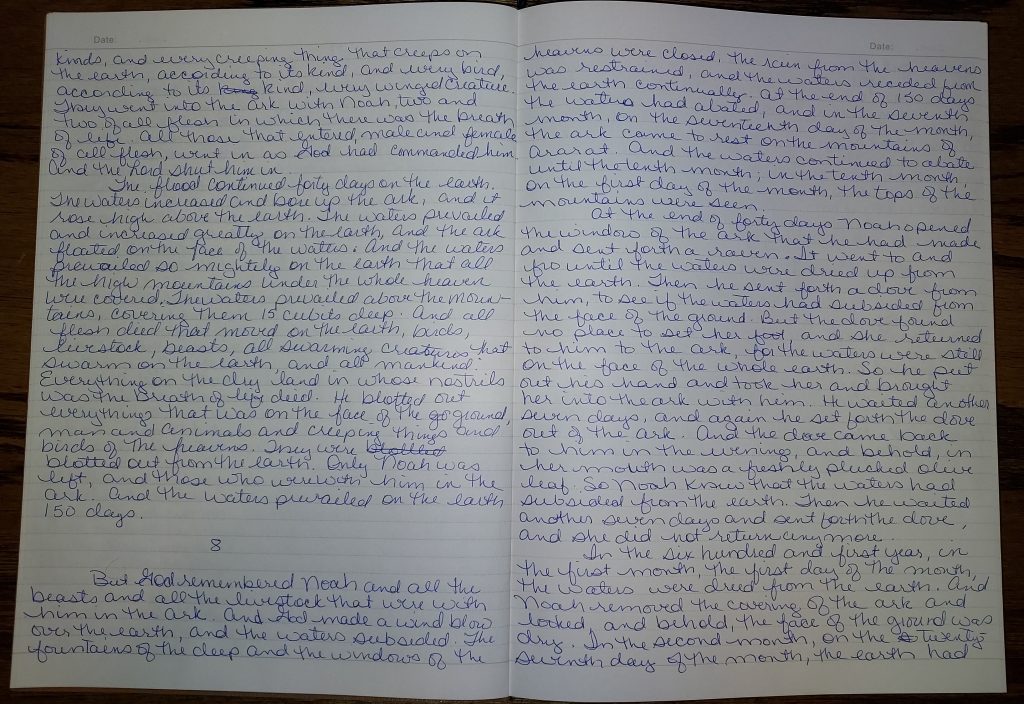 Date:
kinds, and every creeping thing that creeps on
the earth, according to its kind, and every bird,
according to its kind, every winged creature.
They went into the ark with Noah, two and
two of all flesh in which there was the breath
of life. All those that entered, male and female
of all flesh, went in as God had commanded him
and the Lord shut him in.
The flood continued forty days on the earth.
The waters increased and bore up the ark, and it
rose high above the earth. The waters prevailed
and increased greatly on the earth, and the ark
floated on the face of the waters. And the waters
prevailed so mightily on the earth that all
the high mountains under the whole heaven
were covered. The waters prevailed above the moun-
tains, covering them 15 cubits deep. And all
flesh died that moved on the earth, birds,
livestock, beasts, all swarming creatures that
swarm on the earth, and all mankind.
Everything on the dry land in whose nostrils
was the breath of life died. He blotted out
everything that was on the face of the go ground,
man and animals and creeping things and
birds of the heavens. They were blotted
blotted out from the earth. Only Noah was
left, and those who were with him in the
ark. And the waters prevailed on the earth
150 days.
8
But God remembered Noah and all the
beasts and all the livestock that were with
him in the ark. And God made a wind blow
over the earth, and the waters subsided. The
fountains of the deep and the windows of the
Date:
heavens were closed, the rain from the heavens
was restrained, and the waters receded from
the earth continually. At the end of 150 days
the waters had abated, and in the seventh
month, on the seventeenth day of the month,
the ark came to rest on the mountains of
Ararat. And the waters continued to abate
until the tenth month; in the tenth month,
on the first day of the month, the tops of the
mountains were seen.
At the end of forty days Noah opened
the window of the ark that he had made
and sent forth a raven. It went to and
fro until the waters were dried up from
the earth. Then he sent forth a dove from
him, to see if the waters had subsided from
the face of the ground. But the dove found
no place to set her foot and she returned
to him to the ark, for the waters were still
on the face of the whole earth. So he put
out his hand and took her and brought
her into the ark with him. He waited another
seven days, and again he set forth the dove
out of the ark. And the dove came back
to him in the evening, and behold, in
her mouth was a freshly plucked olive
leaf. So Noah knew that the waters had
subsided from the earth. Then he waited
another seven days and sent forth the dove,
and she did not return anymore.
In the six hundred and first year, in
the first month, the first day of the month,
the waters were dried from the earth. And
Noah removed the covering of the ark and
looked, and behold, the face of the ground was
dry. In the second month, on the twenty
seventh day of the month, the earth had